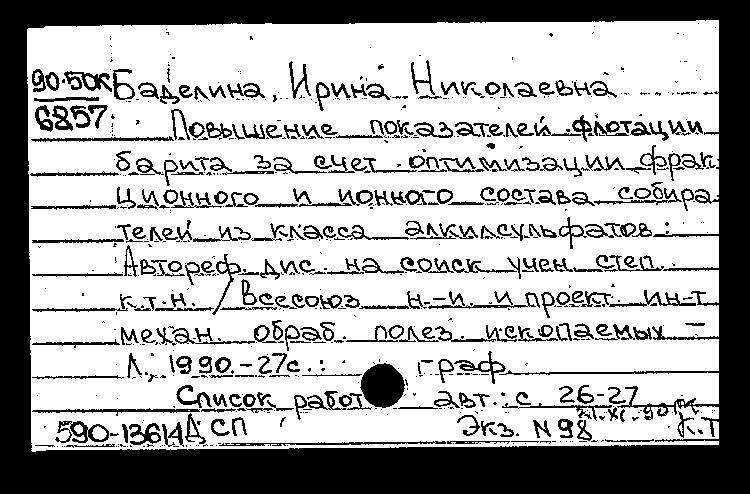 90-50К Баделина, Ирина Николаевна
6857
Повышение показателей флотации
барита за счет оптимизации фрак
ционного и ионного состава собира
телей из класса алкилсульфатов:
Автореф. дис. на соиск учен. степ.
к.т.н. / Всесоюз н.-и. и проект. ин-т
механ. обраб. полез. ископаемых -
Л., 1990. - 27с.: граф.
Список работ авт.: с. 26-27
21.XI.90
590-13614 ДСП Экз. N 98 К.Т